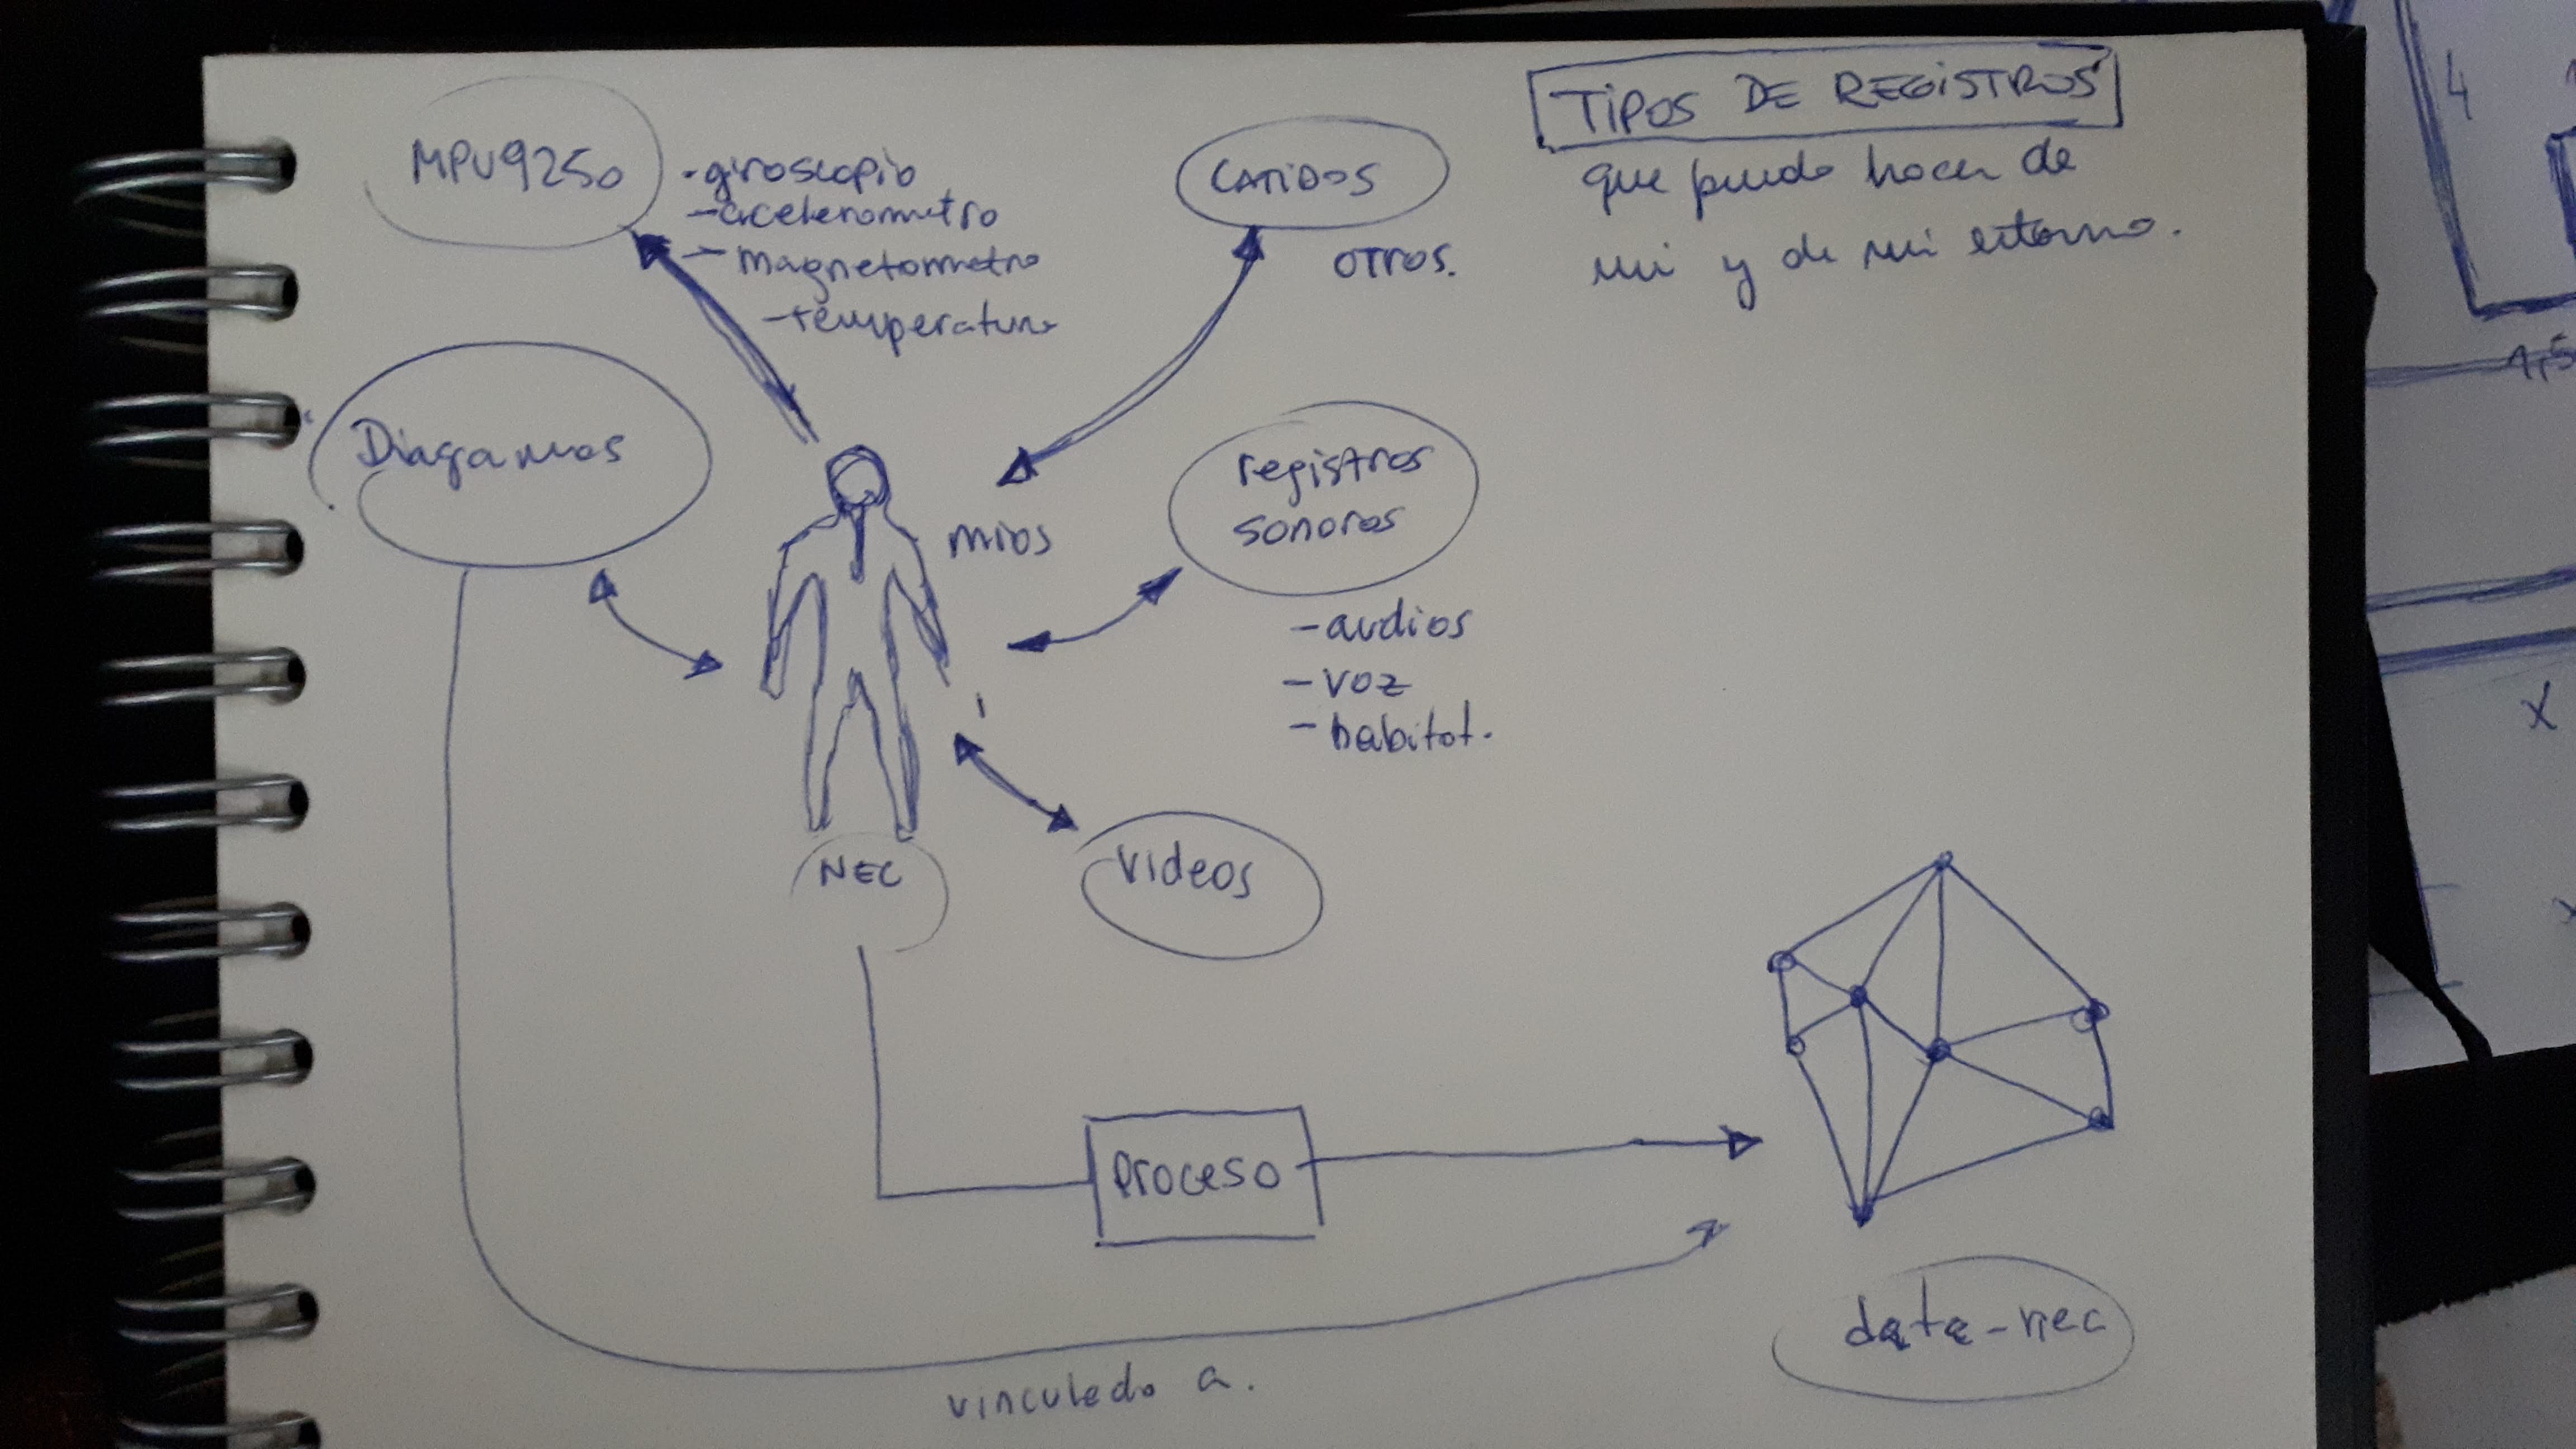 TIPOS DE REGISTROS
que puedo hacer de
mi y de mi entorno.
MPU9250
- giroscopio
- acelerometro
- magnetometro
- temperatura
LATIDOS
OTROS.
Diagramas
mios
registros
sonoros
- audios
- voz
- habitat.
NEC
videos
Proceso
data-nec
vinculado a.
4
1,5
X